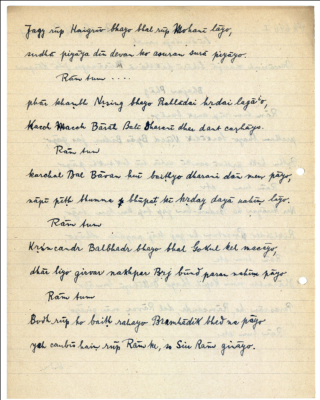 Jagy rūp Haigrīv bhayo bhal rūp Mohanī layo,
sudhā piyāya dīn devan ko asuran surā piyāyo.
Rām tum ....
phār khambh Nrsing bhayo Rahladai hrdai lagā'o,
Kach Mach Bārāh Bali Dharani dhu dant carhāyo.
Rām tum
karchal Bal Bāvan hai dharani dān nem pāyo,
nāpi pith bhumma bhūpat ke hrday dayā nahīm layo.
Rām tum
Krisncandr Balbhadr bhayo bhal Gokul kel macāyo,
dhāi liyo girvar nakhpar Brj būnd paran nahīm pāyo
Rām tum
Bodh rūp ho baith rahayo Bramhādik bhed na pāyo
yeh caubis hain rūp Rām ke, so Siu Rām gināyo.